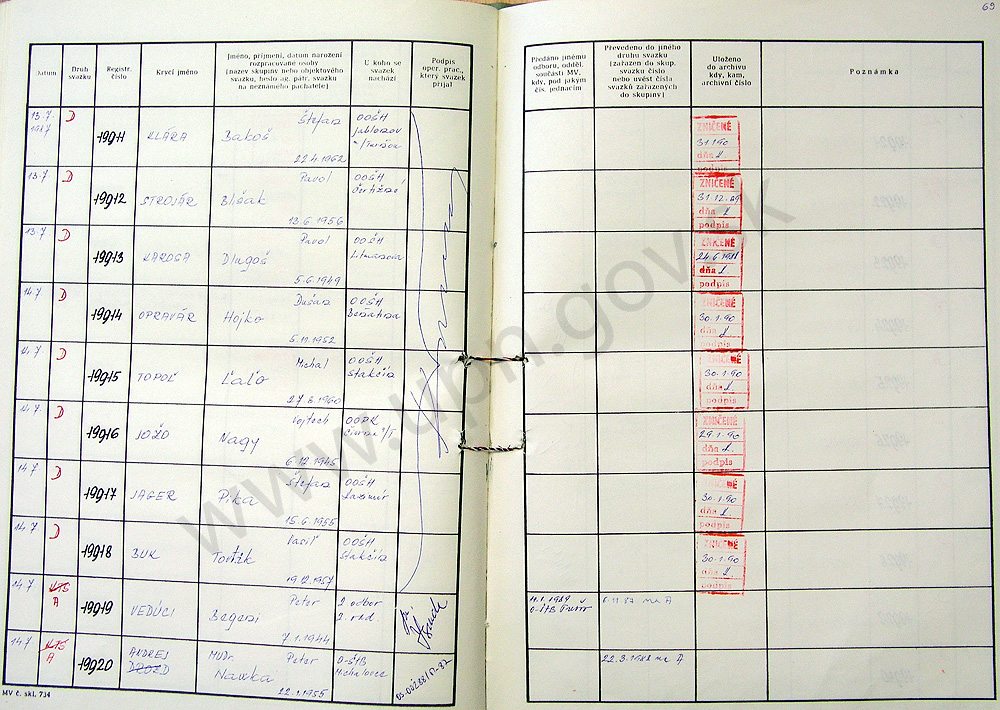 69
Datum
Druh svazku
Registr. číslo
Krycí jméno
Jméno, příjmení, datum narození
rozpracované osoby
(název skupiny nebo objektového
svazku, heslo ag. pátr. svazku
na neznámého pachatele)
U koho se
svazek
nachází
Podpis
oper. prac.,
který svazek
přijal
Předáno jinému
odboru, odděl.
součásti MV,
kdy, pod jakým
čís. jednacím
Převedeno do jiného
druhu svazku
(zařazen do skup.
svazku číslo
nebo uvést čísla
svazků zařazených
do skupiny)
Uloženo
do archivu
kdy, kam,
archivní číslo
Poznámka
13.7. 1987 D 19911 KLÁRA Štefan
Bakoš
22.4.1962
OOŠH
ZNIČENÉ
31.1.90
dňa
podpis
13.7 D 19912 STROJÁR Pavol
Blišák
13.6.1956
OOŠH
ZNIČENÉ
31.12.89
dňa
podpis
13.7 D 19913 KAROSA Pavol
Dlugoš
5.6.1949
OOŠH
ZNIČENÉ
24.6.1988
dňa
podpis
14.7 D 19914 OPRAVÁR Dušan
Hojko
5.11.1952
OOŠH
ZNIČENÉ
30.1.90
dňa
podpis
14.7. D 19915 TOPOĽ Michal
Ľaľo
OOŠH
Stakčín
30.1.90
dňa
podpis
14.7. D 19916 JOŽO Vojtech
Nagy
6.12.1945
OOPK
ZNIČENÉ
29.1.90
dňa
podpis
14.7 D 19917 JÄGER Štefan
Pika
15.6.1955
OOŠH
ZNIČENÉ
30.1.90
dňa
podpis
14.7 D 19918 BUK Vasiľ
Tortik
19.12.1957
OOŠH
Stakčín
ZNIČENÉ
30.1.90
dňa
podpis
14.7 KTS A 19919 VEDÚCI Peter
Begeni
7.1.1944
2. odbor
2. odd.
11.1.1989
O-ŠtB Prešov
14.7 KTS A 19920 ANDREJ
DROZD
MUDr. Peter
Navka
22.1.1955
O-ŠtB
Michalovce
22.3.1988 na A
MV č. skl. 734
www.upn.gov.sk